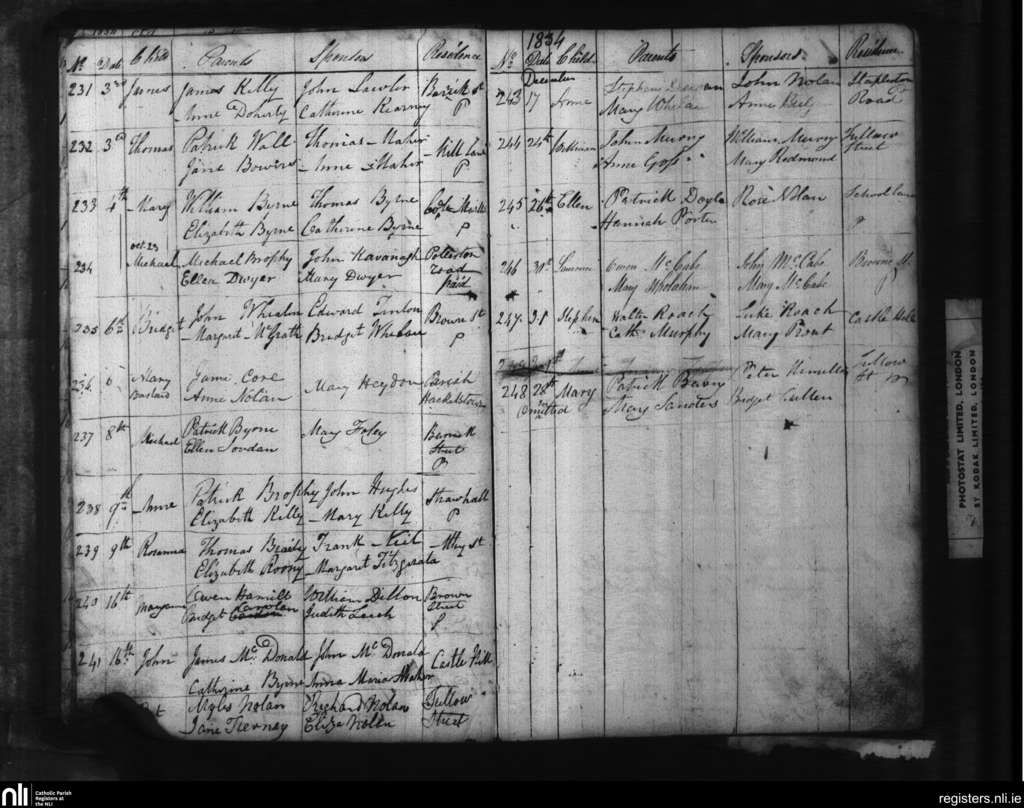 No. Date Child Parents Sponsors Residence
231 3rd James James Kelly John Lawlor Barrick St
Anne Doherty Catherine Kearney P
232 3rd Thomas Patrick Wall Thomas Maher Mill Lane
Jane Bowers Anne Maher P
233 4th Mary William Byrne Thomas Byrne
Elizabeth Byrne Catherine Byrne P
234 Oct. 23 Michael Michael Brophy John Kavanagh Pollerton
Ellen Dwyer Mary Dwyer road
paid
235 6th Bridget John Whealan Edward Tinlon Browne St
Margaret McGrath Bridget Whelan P
236 6 Mary Jams. Core Mary Heydon Parish
Bastard Anne Nolan
237 8th Michael Patrick Byrne Mary Foley Barrack
Ellen Jordan Street
P
238 9th Anne Patrick Brophy John Hughes Strawhall
Elizabeth Kelly Mary Kelly P
239 9th Rosanna Thomas Frank
Elizabeth Roony Margaret Fitzgerald
240 16th Maryanne Owen William Dillon Brown
Bridget Judith Leech Street
P
241 16th John James McDonald John McDonald Castle Hill
Catherine Byrne Anna Maria Maher
Pat Myles Nolan Richard Nolan Tullow
Jane Tierney Eliza Nolan Street
1834
No. Date Child Parents Sponsors Residence
December
243 17 Anne Stephen John Nolan Stapleston
Mary Whelan Anne Road
244 24th William John William Tullow
Anne Mary Redmond Street
245 26th Ellen Patrick Doyle Rose Nolan School Lane
Hannah Porter P
246 Owen McCabe John McCabe Browne St
Mary Mary McCabe
247 Stephen Walter Roach Luke Roach Castle Hill
Cath. Murphy Mary Prout
248 28th Mary Patrick Peter Tullow
Omitted Mary Sanders Bridget Cullen St
PHOTOSTAT LIMITED, LONDON
BY KODAK LIMITED, LONDON
nli Catholic Parish
Registers at
the NLI
registers.nli.ie